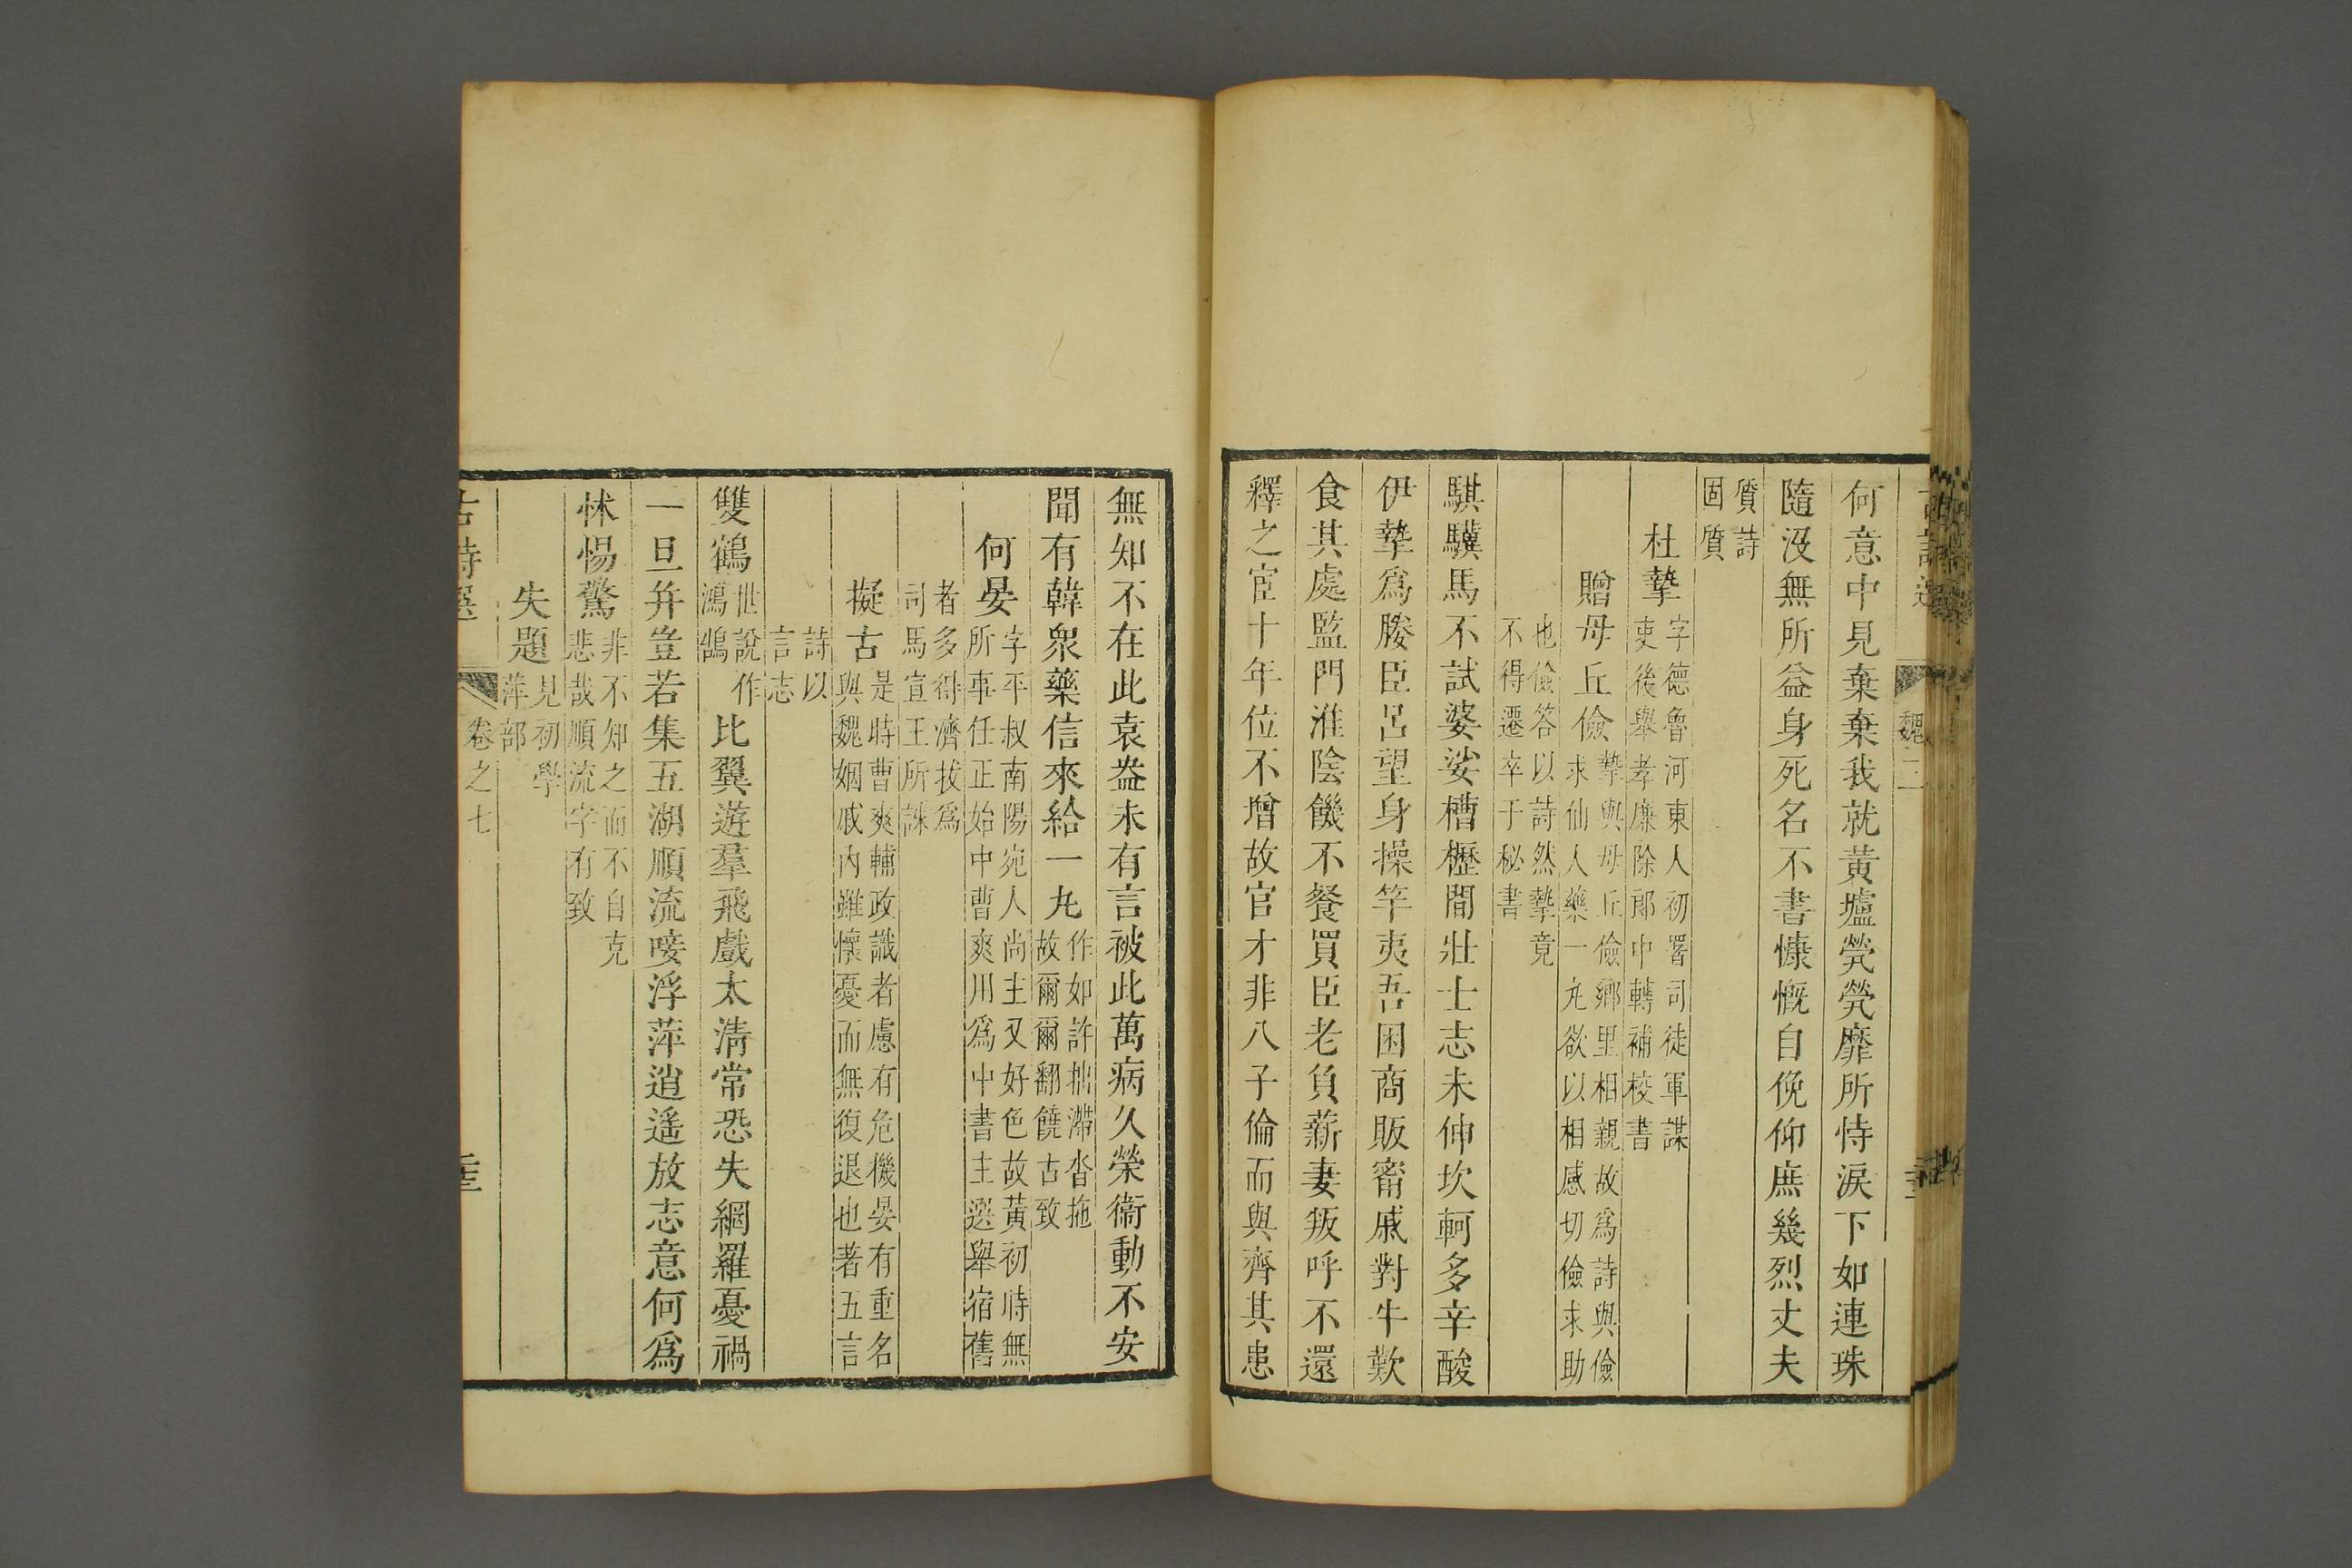 魏二
何意中見棄棄我就黃壚煢煢靡所恃淚下如連珠
隨沒無所益身死名不書慷慨自俛仰庶幾烈丈夫
質詩
固質
杜摯
字德魯河東人初署司徒軍謀
吏後舉孝廉除郎中轉補校書
贈毋丘儉
摯與毋丘儉鄉里相親故爲詩與儉
求仙人藥一丸欲以相感切儉求助
也儉答以詩然摯竟
不得遷卒于秘書
騏驥馬不試婆娑槽櫪間壯士志未伸坎軻多辛酸
伊摯爲媵臣呂望身操竿夷吾困商販甯戚對牛歎
食其處監門淮陰饑不餐買臣老負薪妻叛呼不還
釋之宦十年位不增故官才非八子倫而與齊其患
無知不在此袁盎未有言被此萬病久榮衞動不安
聞有韓衆藥信來給一丸
作如許拙滯沓拖
故爾爾翻饒古致
何晏
字平叔南陽宛人尚主又好色故黃初時無
所事任正始中曹爽川爲中書主選舉宿舊
者多得濟拔爲
司馬宣王所誅
擬古
是時曹爽輔政識者慮有危機晏有重名
與魏姻戚內雖懷憂而無復退也著五言
詩以
言志
雙鶴
世說作
鴻鵠
比翼遊羣飛戲太清常恐失網羅憂禍
一旦幷豈若集五湖順流唼浮萍逍遙放志意何爲
怵惕驚
非不知之而不自克
悲哉順流字有致
失題
見初學
萍部
古詩選
卷之七